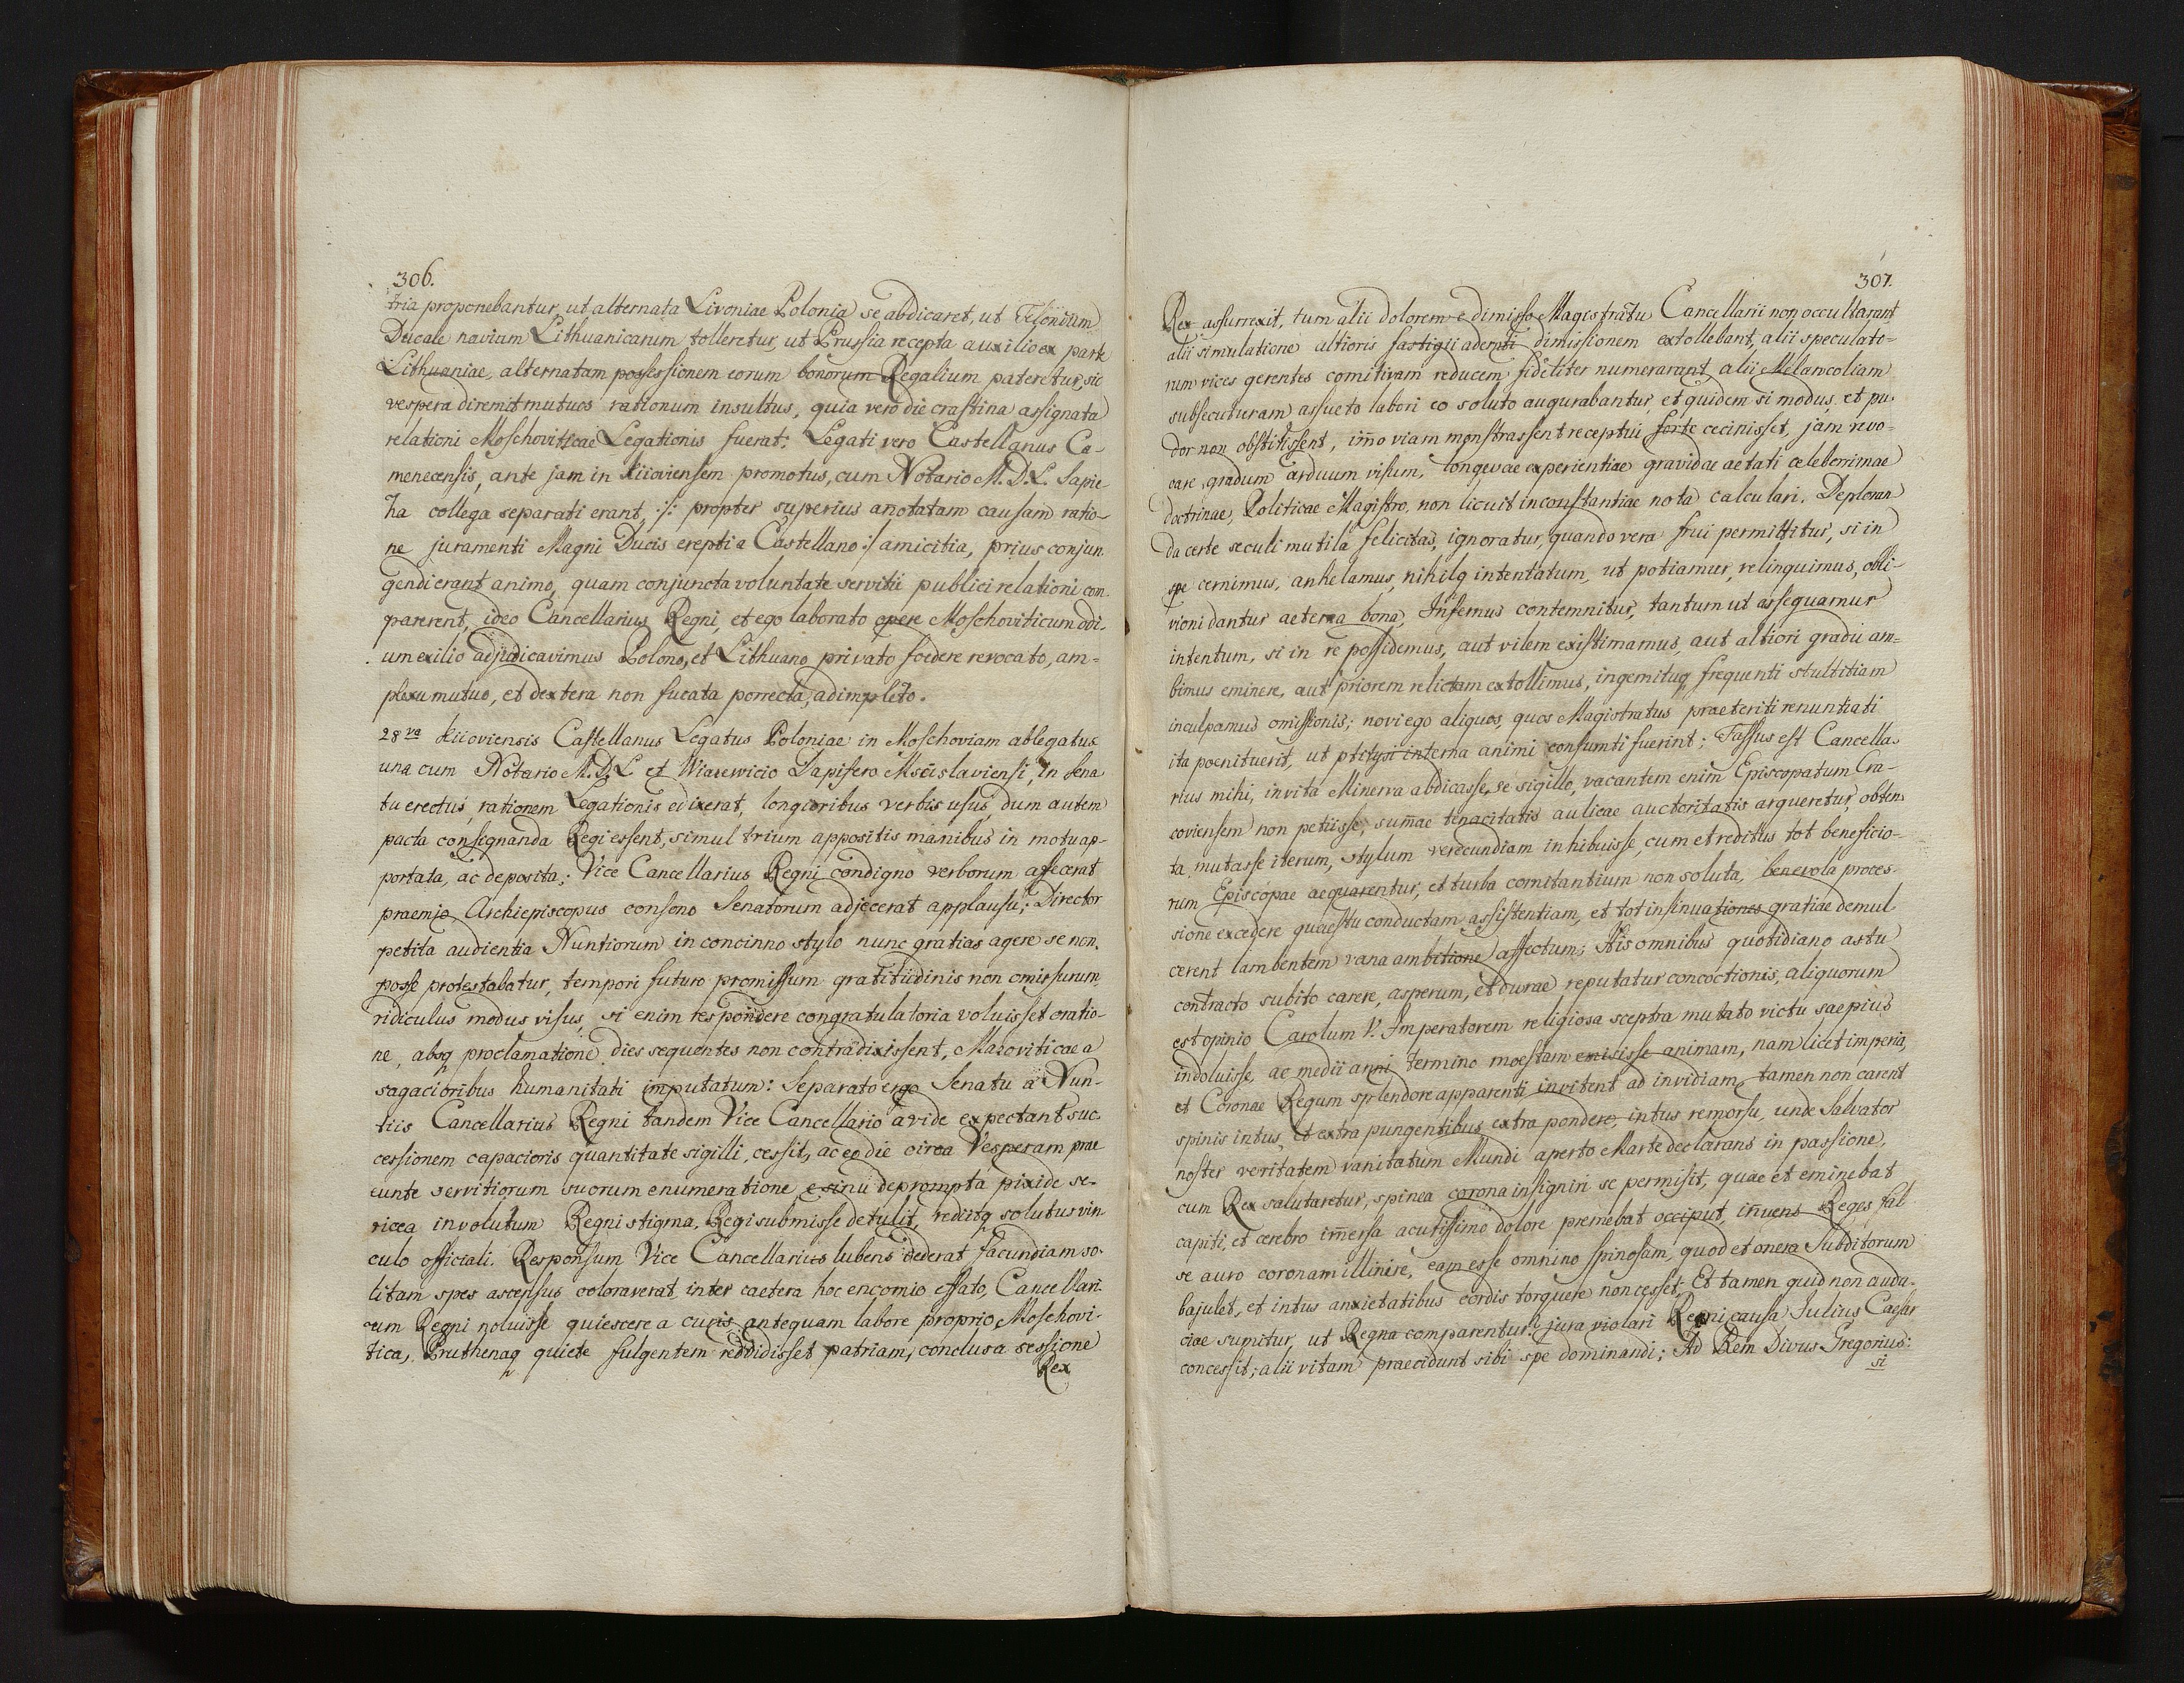 306.
tria proponebantur, ut alternata Livoniae Polonia se abdicaret, ut Telonium
Ducale navium Lithuanicarum tolleretur, ut Prussia recepta auxilio ex parte
Lithuaniae, alternatam possessionem eorum bonorum Regalium pateretur, sic
vespera diremit mutuos rationum insultus, quia vero die crastina assignata
relationi Moschoviticae Legationis fuerat: Legati vero Castellanus Ca-
menecensis, ante jam in Kiioviensem promotus, cum Notario M. D. L. Sapie
ha collega separati erant /: propter superius anotatam causam ratio-
ne juramenti Magni Ducis erepti a Castellano :/ amicitia, prius conjun
gendi erant animo, quam conjuncta voluntate servitii publici relationi com
parerent, ideo Cancellarius Regni, et ego laborato opere Moschoviticum odi-
um exilio adjudicavimus Polono, et Lithuano privato foedere revocato, am-
plexu mutuo, et dextera non fucata porrecta, adimpleto.
28va Kiioviensis Castellanus Legatus Poloniae in Moschoviam ablegatus
una cum Notario M. D. L et Wiazewicio Dapifero Mscislaviensi, in Sena
tu erectus, rationem Legationis edixerat, longioribus verbis usus, dum autem
pacta consignanda Regi essent, simul trium appositis manibus in motu ap-
portata, ac deposita; Vice Cancellarius Regni condigno verborum affecerat
praemio, Archiepiscopus consono Senatorum adjecerat applausu; Director
petita audientia Nuntiorum in concinno stylo nunc gratias agere se non
posse protestabatur, tempori futuro promissum gratitudinis non omissurum,
ridiculus modus visus, si enim respondere congratulatoria voluisset oratio-
ne, absq proclamatione dies sequentes non contradixissent, Mazoviticae a
sagacioribus humanitati imputatum: Separato ergo Senatu a Nun-
tiis Cancellarius Regni tandem Vice Cancellario avide expectant suc
cessionem capacioris quantitate sigilli, cessit, ac eo die circa Vesperam prae
eunte servitiorum suorum enumeratione, e sinu deprompta pixide se-
ricea involutum Regni stigma, Regi submisse detulit, rediitq solutus vin
culo officiali. Responsum Vice Cancellarius lubens dederat facundiam so-
litam spes ascensus coloraverat, inter caetera hoc encomio effato, Cancellari-
um Regni noluisse quiescere a curis, antequam labore proprio Moschovi-
tica, Pruthenaq quiete fulgentem reddidisset patriam, conclusa sessione
Rex
307.
Rex assurrexit, tum alii dolorem e dimisso Magistratu Cancellarii non occultarant
alii simulatione altioris fastigii adempti dimissionem extollebant, alii speculato-
rum vices gerentes comitivam reducem fideliter numerarant, alii Melancoliam
subsecuturam assueto labori eo soluto augurabantur, et quidem si modus, et pu-
dor non obstitissent, imo viam monstrassent receptui forte cecinisset, jam revo-
care gradum arduum visum, longevae experientiae gravidae aetati celeberrimae
doctrinae, Politicae Magistro, non licuit inconstantiae nota calculari. Deploran
da certe seculi mutila felicitas, ignoratur, quando vera frui permittitur, si in
spe cernimus, anhelamus, nihilq intentatum, ut potiamur, relinquimus, obli-
vioni dantur aeterna bona, Infernus contemnitur, tantum ut assequamur
intentum, si in re possidemus, aut vilem existimamus, aut altiori gradu am-
bimus eminere, aut priorem relictam extollimus, ingemituq frequenti stultitiam
inculpamus omissionis; novi ego aliquos, quos Magistratus praeteriti renuntiati
ita poenituerit, ut ptitysi interna animi consumti fuerint; Fassus est Cancella-
rius mihi, invita Minerva abdicasse, se sigillo, vacantem enim Episcopatum Cra-
coviensem non petiisse, sumae tenacitatis aulicae auctoritatis argueretur, obten-
ta, mutasse iterum, stylum verecundiam inhibuisse, cum et reditus tot beneficio-
rum Episcopae aequarentur, et turba comitantium non soluta, benevola proces-
sione excedere quaestu conductam assistentiam, et tot insinuationes gratiae demul
cerent lambentem vana ambitione affectum; His omnibus quotidiano astu
contracto subito carere, asperum, et durae reputatur concoctionis, aliquorum
est opinio Carolum V. Imperatorem religiosa sceptra mutato victu saepius
indoluisse, ac medii anni termino moestam emisisse animam, nam licet imperia,
et Coronae Regum splendore apparenti invitent ad invidiam, tamen non carent
spinis intus, et extra pungentibus, extra pondere, intus remorsu, unde Salvator
noster veritatem vanitatum Mundi aperto Marte declarans in passione,
cum Rex salutaretur, spinea corona insigniri se permisit, quae et eminebat
capiti, et cerebro imersa acutissimo dolore premebat occiput, inuens Reges fal
se auro coronam illinire, eam esse omnino spinosam, quod et onera Subditorum
bajulet, et intus anxietatibus cordis torquere non cesset; Et tamen quid non auda-
ciae sumitur, ut Regna comparentur? jura violari Regni causa Julius Caesar
concessit; alii vitam praecidunt sibi spe dominandi; Ad Rem Divus Gregorius:
si